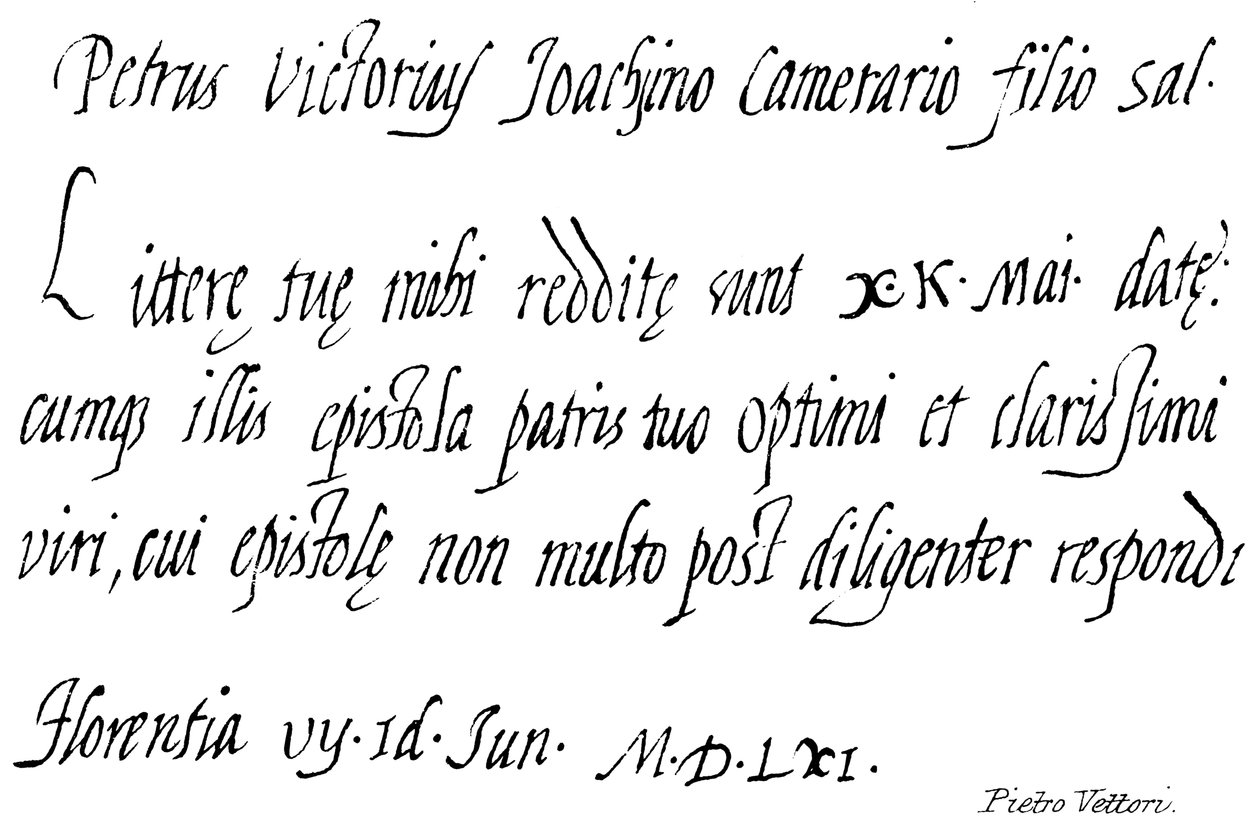 Petrus Victorius Joachino Camerario filio sal.
Litterę tuę mihi redditę sunt XK. Mai. datę:
cumqꝫ illis epistola patris tuo optimi et clarissimi
viri, cui epistolę non multo post diligenter respondi
Florentia vij. Id. Jun. M.D.LXI.
Pietro Vettori.